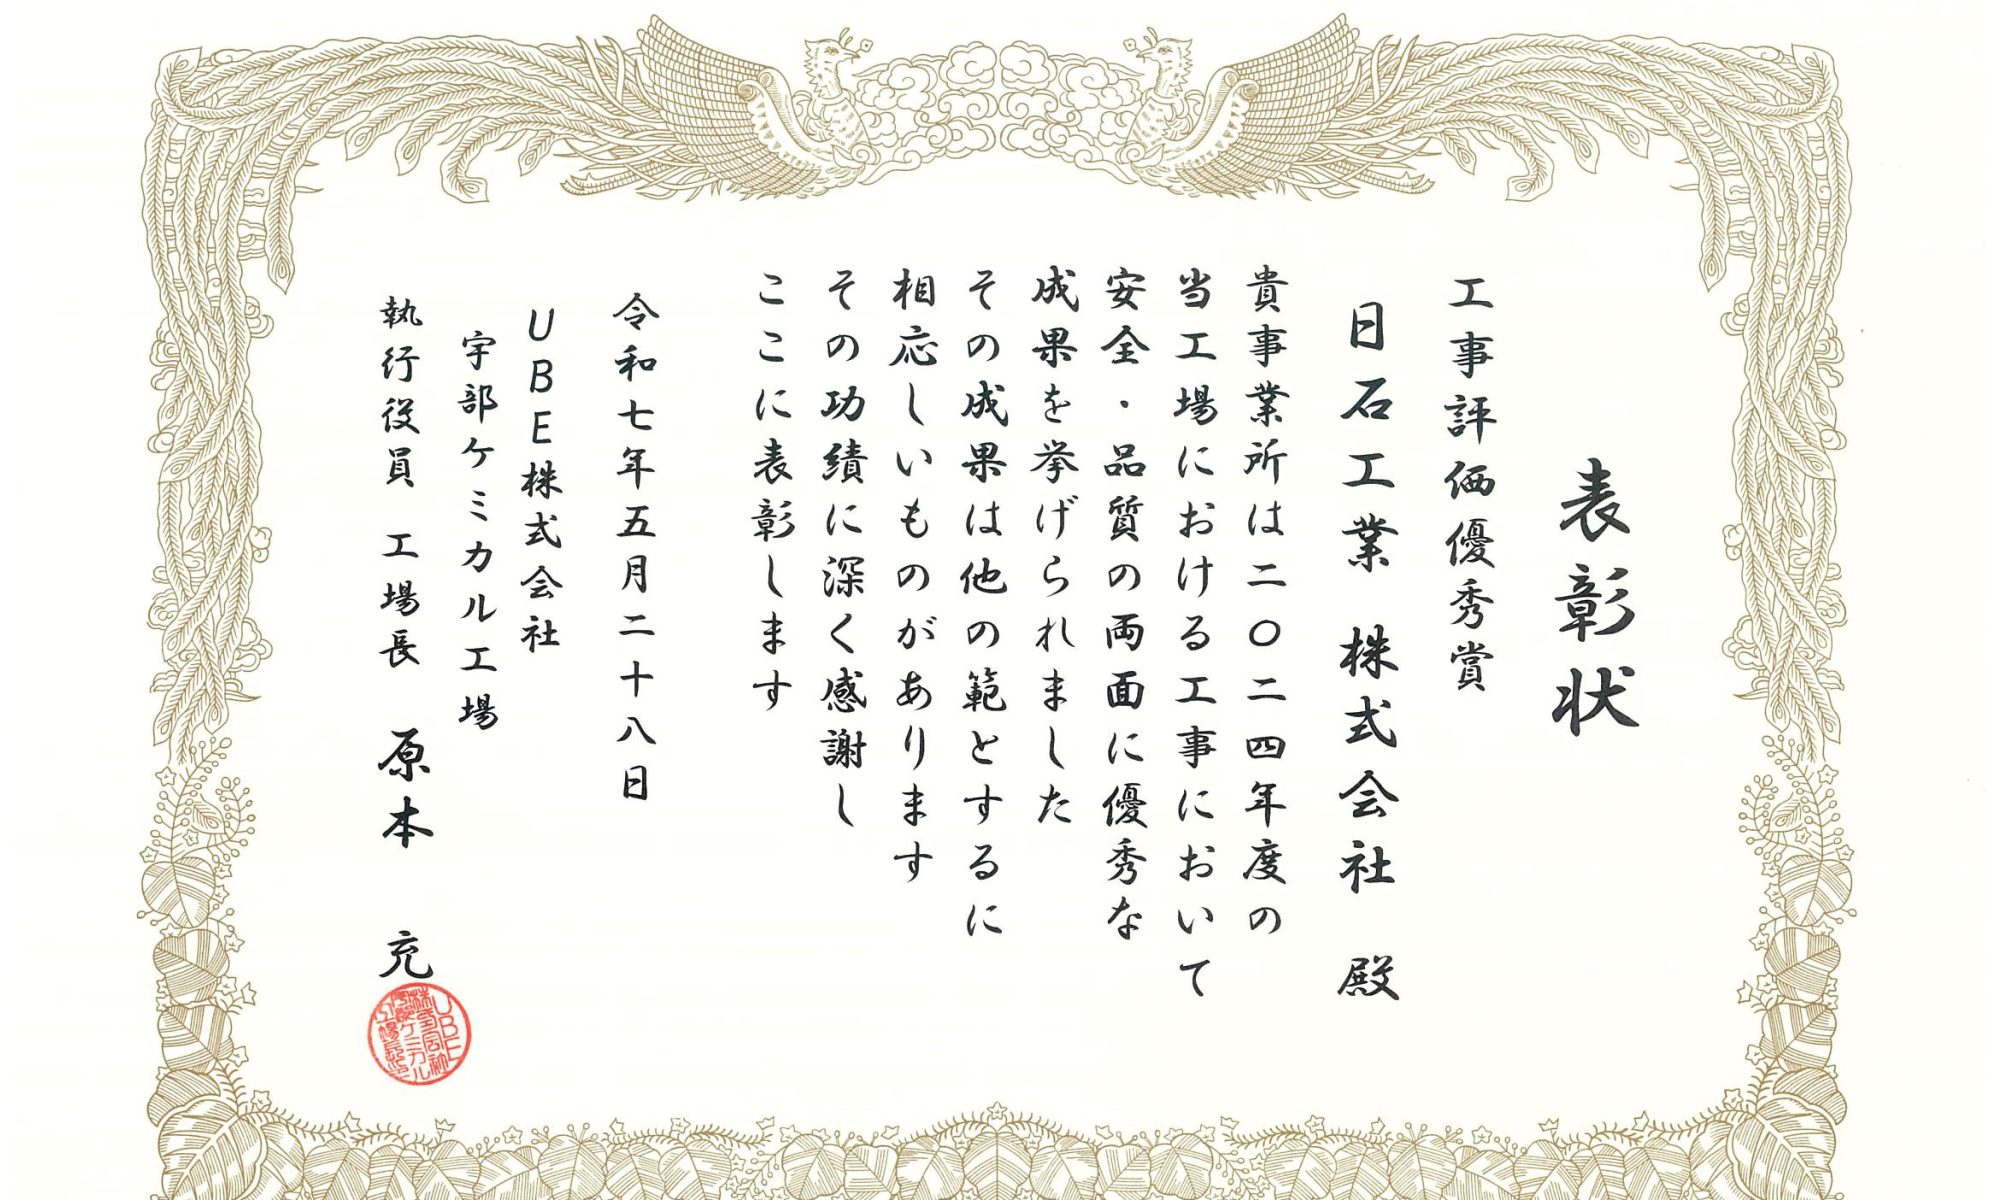 表彰状
工事評価優秀賞
日石工業 株式会社 殿
貴事業所は二〇二四年度の
当工場における工事において
安全・品質の両面に優秀な
成果を挙げられました
その成果は他の範とするに
相応しいものがあります
その功績に深く感謝し
ここに表彰します
令和七年五月二十八日
UBE株式会社
宇部ケミカル工場
執行役員 工場長 原本 充